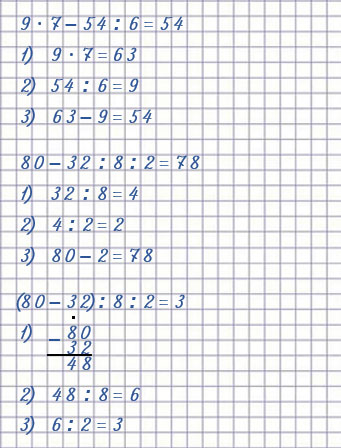 9 · 7 – 54 : 6 = 54
1) 9 · 7 = 63
2) 54 : 6 = 9
3) 63 – 9 = 54
80 – 32 : 8 : 2 = 78
1) 32 : 8 = 4
2) 4 : 2 = 2
3) 80 – 2 = 78
(80 – 32) : 8 : 2 = 3
1) – 80
32
48
2) 48 : 8 = 6
3) 6 : 2 = 3